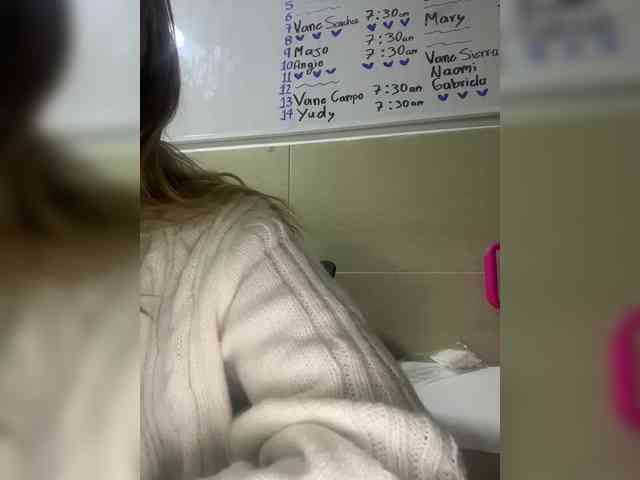 5
6 7:30am
7 Vane Sancha Mary
8 7:30am
9 Maso 7:30am Vane Sierra
10 Angie Naomi
11 Gabriela
12 7:30am
13 Vane Campo 7:30am
14 Yudy